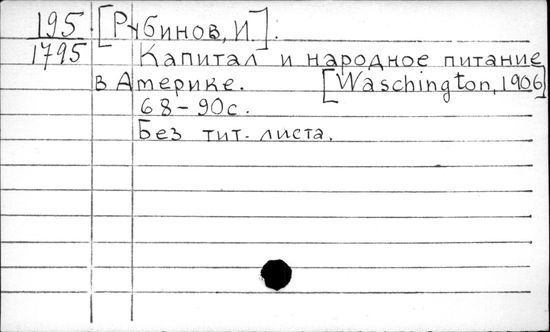 195 [Рубинов, И.].
1795 Капитал и народное питание
в Америке. [Waschington, 1906]
68-90с.
Без тит. листа.